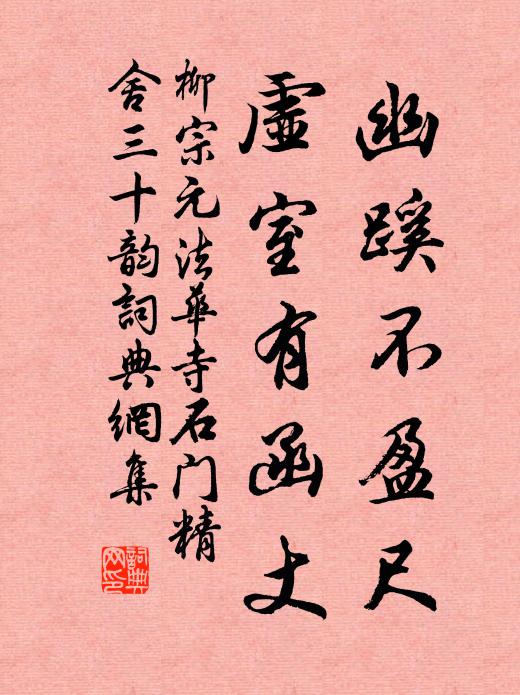 幽蹊不盈尺
虚室有函丈
柳宗元法華寺石门精
舍三十韵詞典網集
詞典
网印